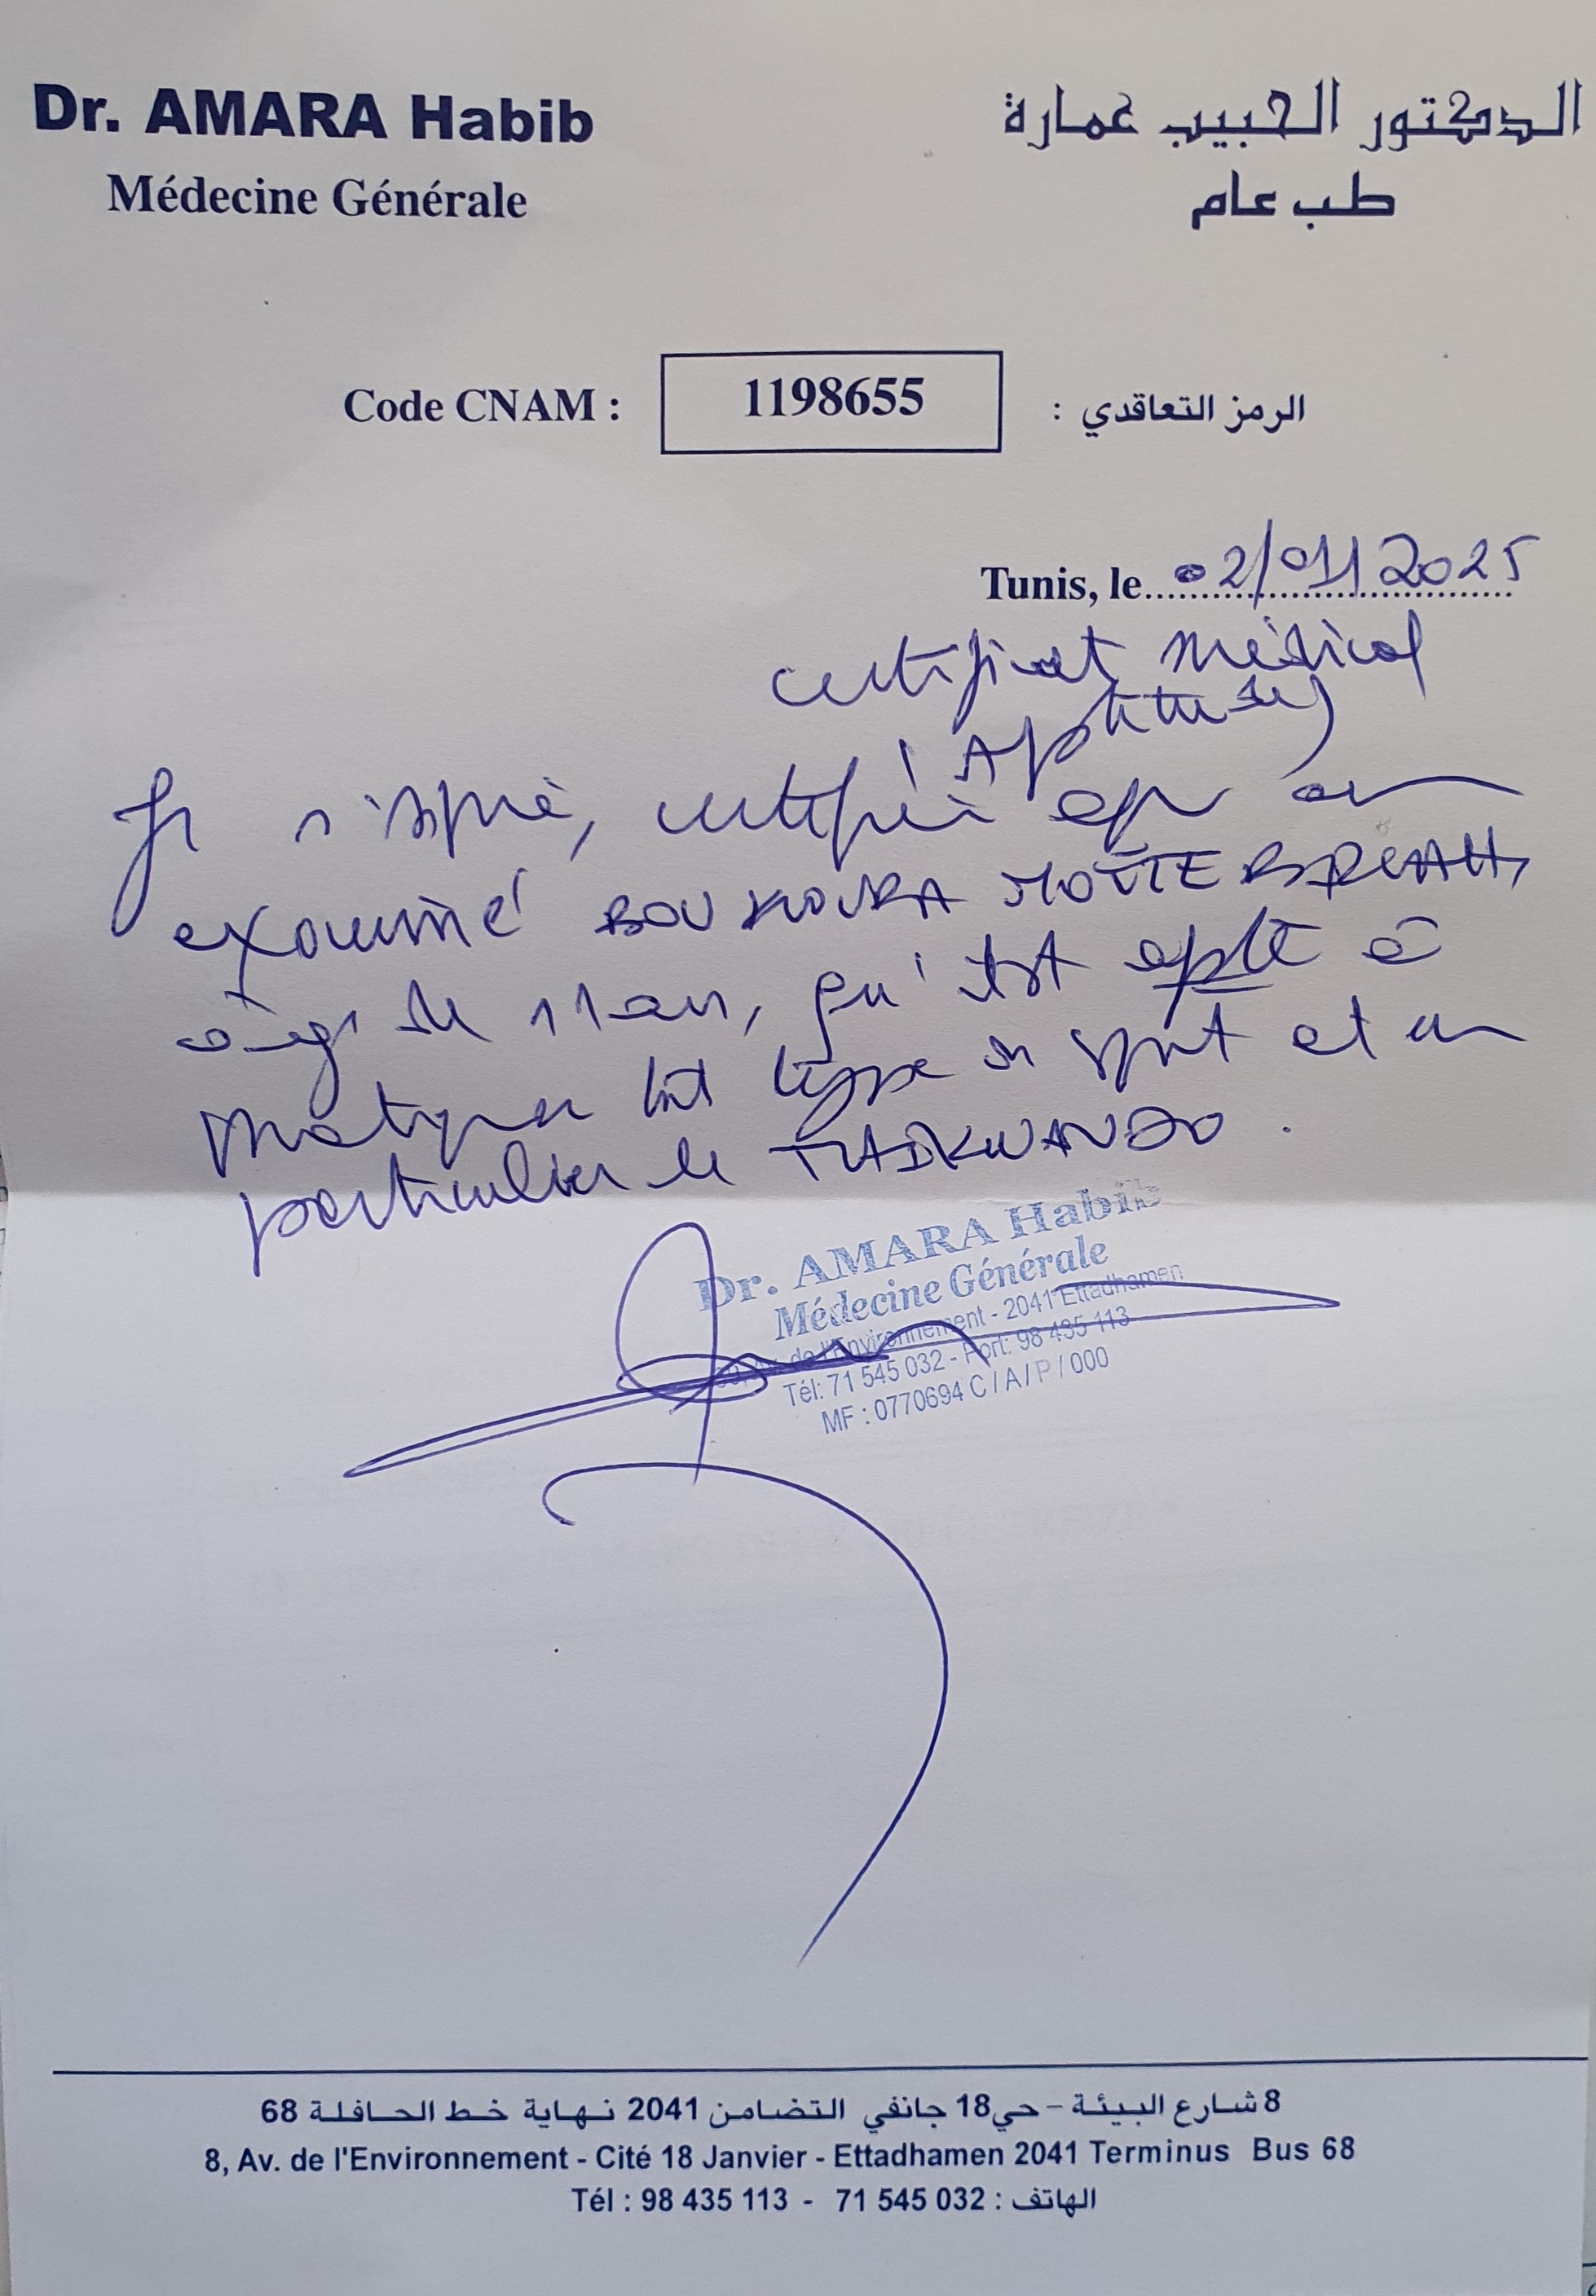 Dr. AMARA Habib
الدكتور الحبيب عمارة
Médecine Générale
طب عام
Code CNAM : 1198655 الرمز التعاقدي :
Tunis, le 02/01/2025
certificat médical
d'Aptitude
Je certifie
examiné BOUKHOURA
âgé de 11 ans, qu'il est apte à
pratiquer tout type de sport et en
particulier le
Dr. AMARA Habib
Médecine Générale
Av. de l'Environnement - 2041 Ettadhamen
Tél: 71 545 032 - Port: 98 435 113
MF : 0770694 C / A / P / 000
8 شارع البيئة - حي 18 جانفي التضامن 2041 نهاية خط الحافلة 68
8, Av. de l'Environnement - Cité 18 Janvier - Ettadhamen 2041 Terminus Bus 68
Tél : 98 435 113 - 71 545 032 : الهاتف